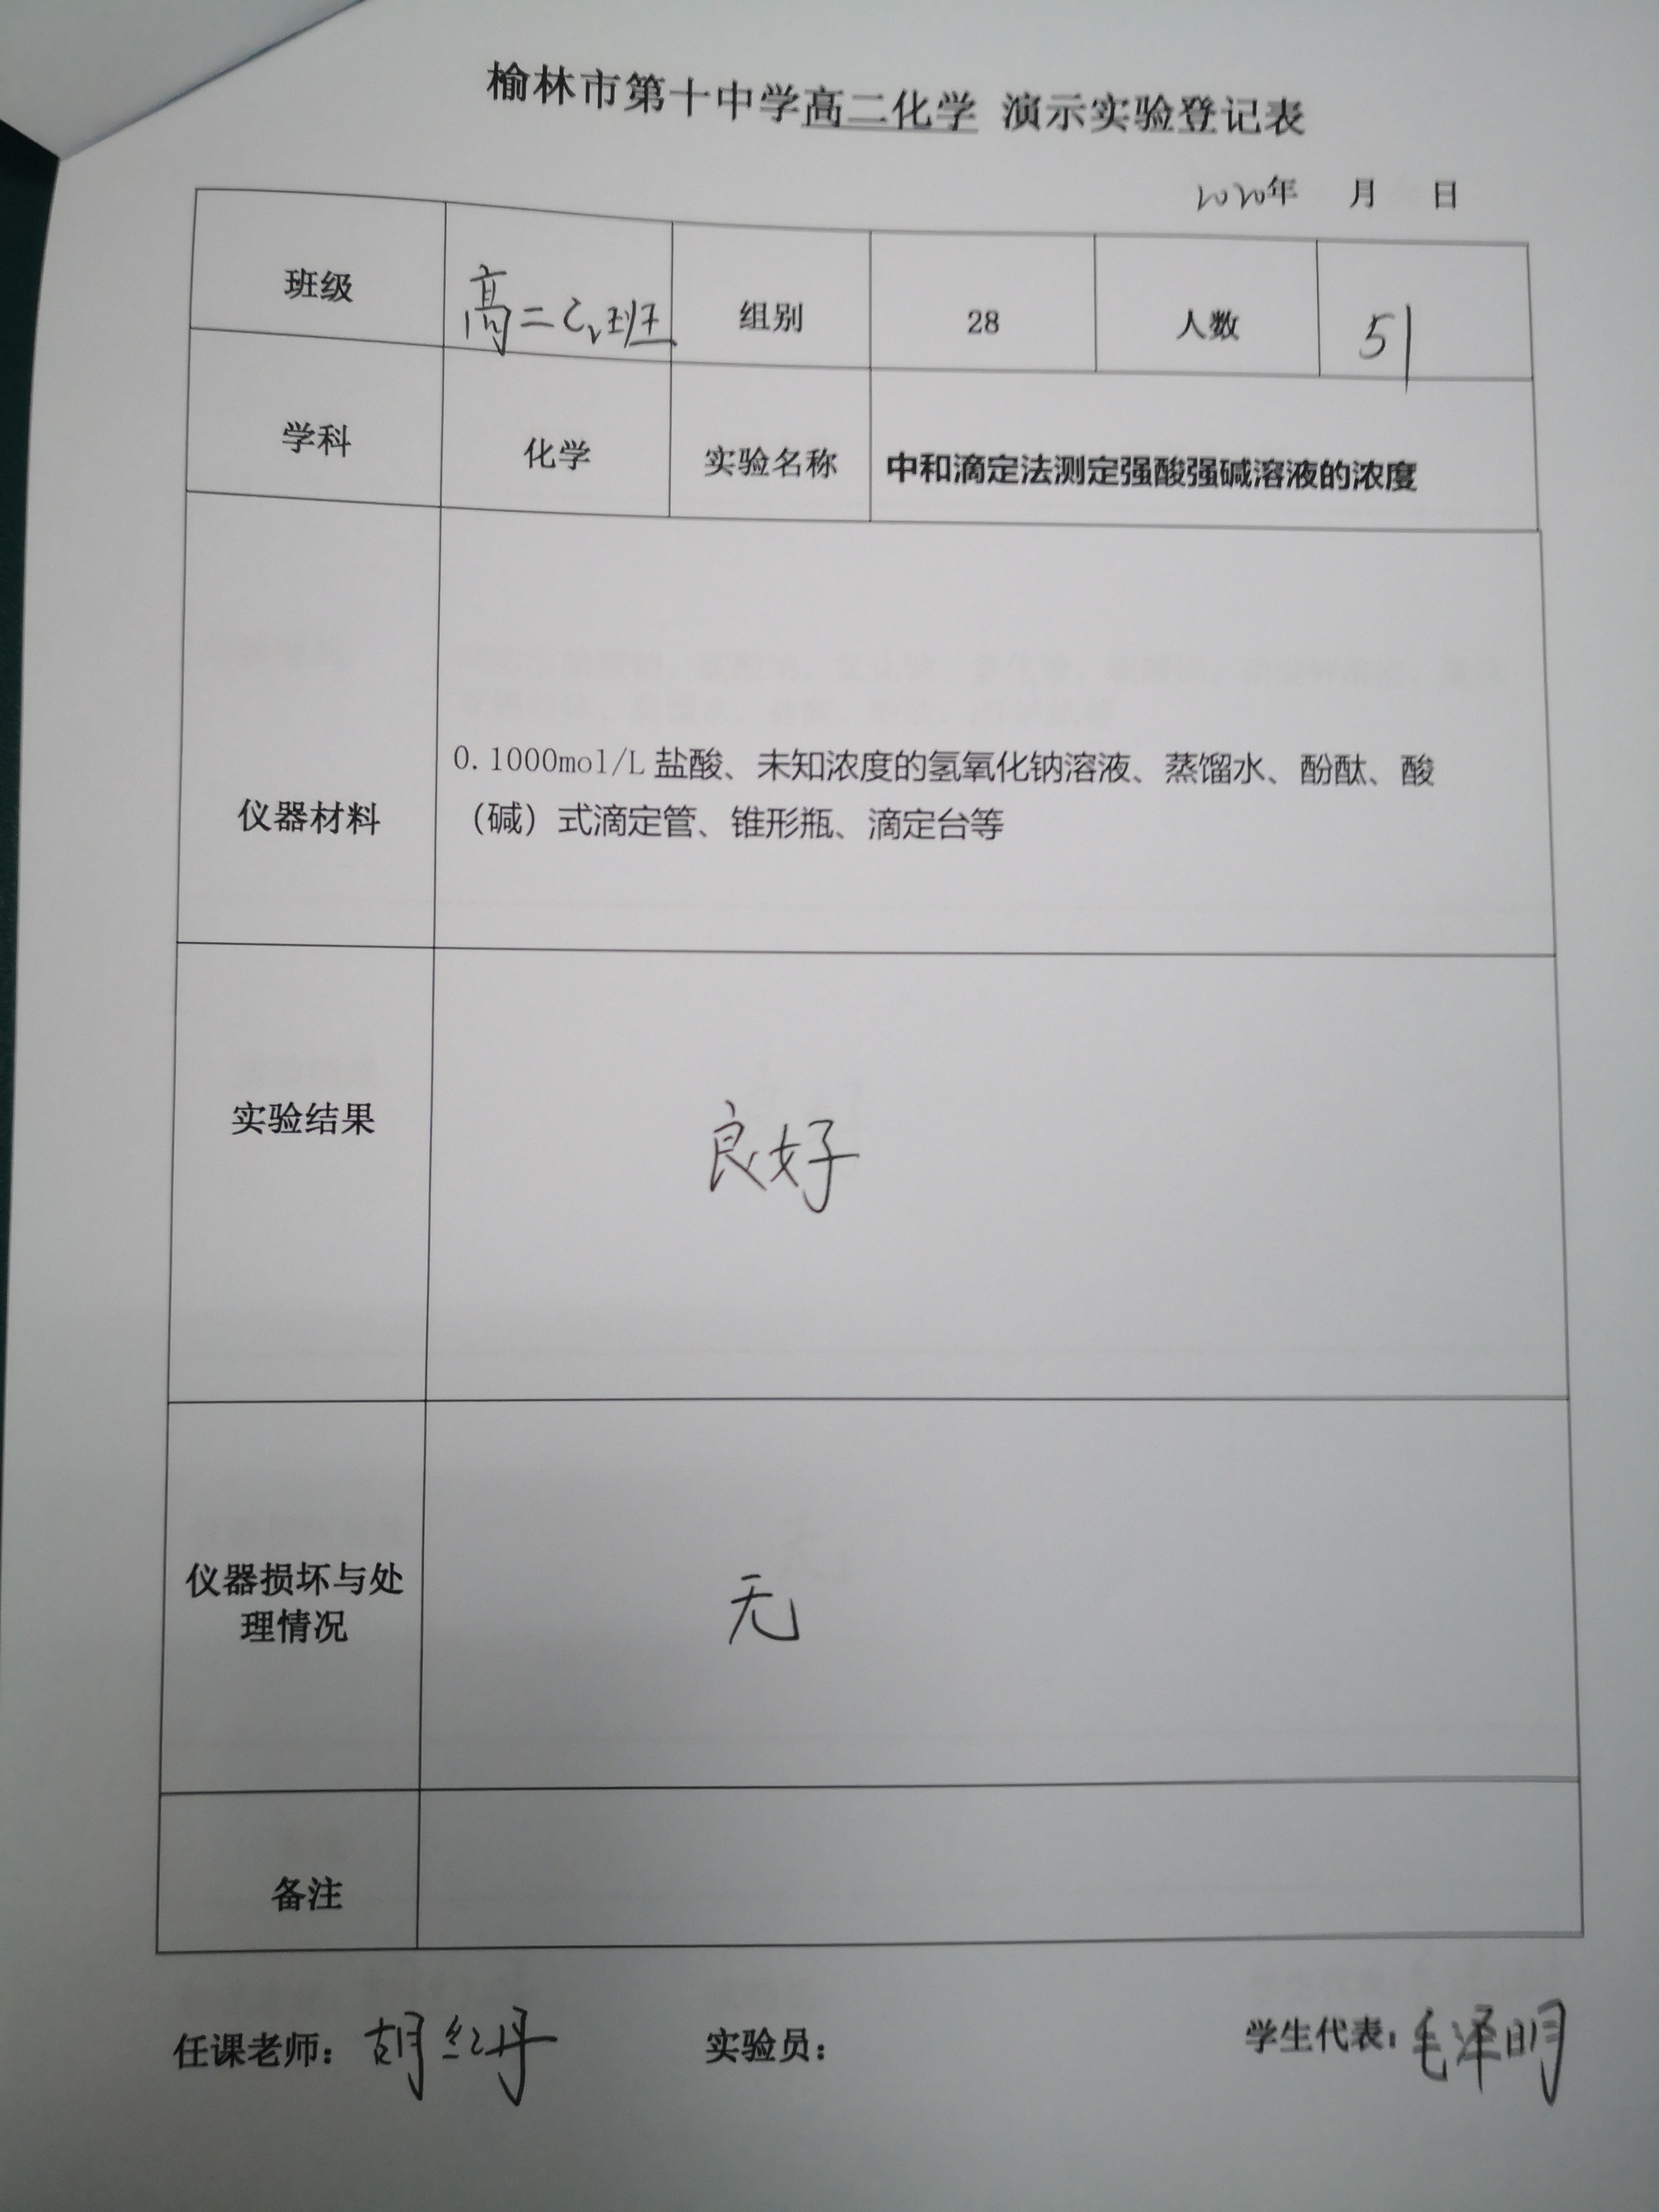 榆林市第十中学高二化学 演示实验登记表
2020年 月 日
班级 高二 班 组别 28 人数 51
学科 化学 实验名称 中和滴定法测定强酸强碱溶液的浓度
仪器材料
0.1000mol/L 盐酸、未知浓度的氢氧化钠溶液、蒸馏水、酚酞、酸
（碱）式滴定管、锥形瓶、滴定台等
实验结果 良好
仪器损坏与处
理情况
无
备注
任课老师：胡红丹 实验员： 学生代表：毛泽明